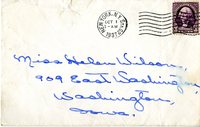 NEW YORK, N.Y.
OCT 1
1937
Miss Helen Wilson,
909 East Washington,
Washington,
Iowa.